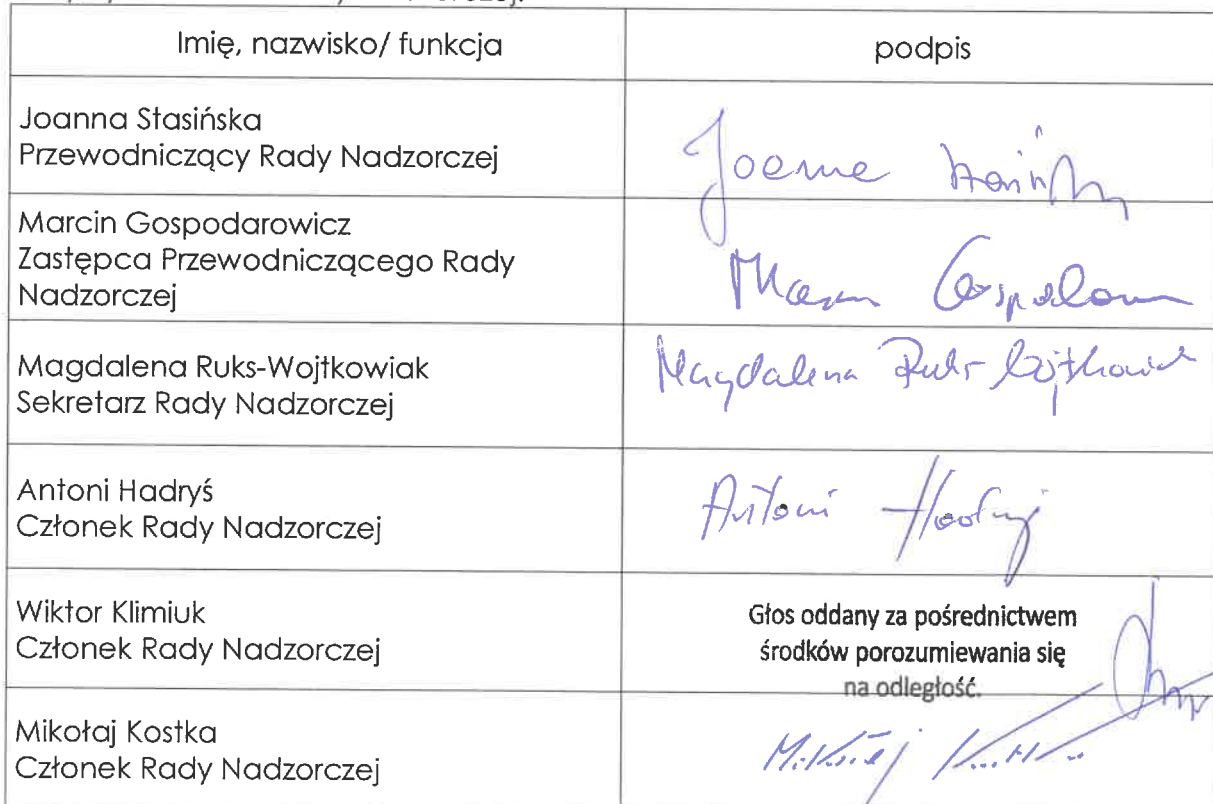 Imię, nazwisko/ funkcja
podpis
Joanna Stasińska
Przewodniczący Rady Nadzorczej
Marcin Gospodarowicz
Zastępca Przewodniczącego Rady
Nadzorczej
Magdalena Ruks-Wojtkowiak
Sekretarz Rady Nadzorczej
Magdalena Ruks-Wojtkowiak
Antoni Hadryś
Członek Rady Nadzorczej
Antoni Hadryś
Wiktor Klimiuk
Członek Rady Nadzorczej
Głos oddany za pośrednictwem
środków porozumiewania się
na odległość.
Mikołaj Kostka
Członek Rady Nadzorczej
Mikołaj Kostka